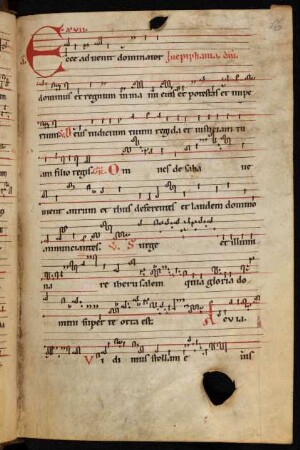 Ecce advenit dominator In epiphania dni.
dominus et regnum in ma nu eius et potestas et impe
rium. Deus iudicium tuum regi da et iusticiam tu
am filio regis. Om nes de saba ve
nient aurum et thus deferentes et laudem domino
annunciantes. V. Surge et illumi
na re iherusalem quia gloria do
mini super te orta est. Alleluia.
Vi di mus stellam e ius